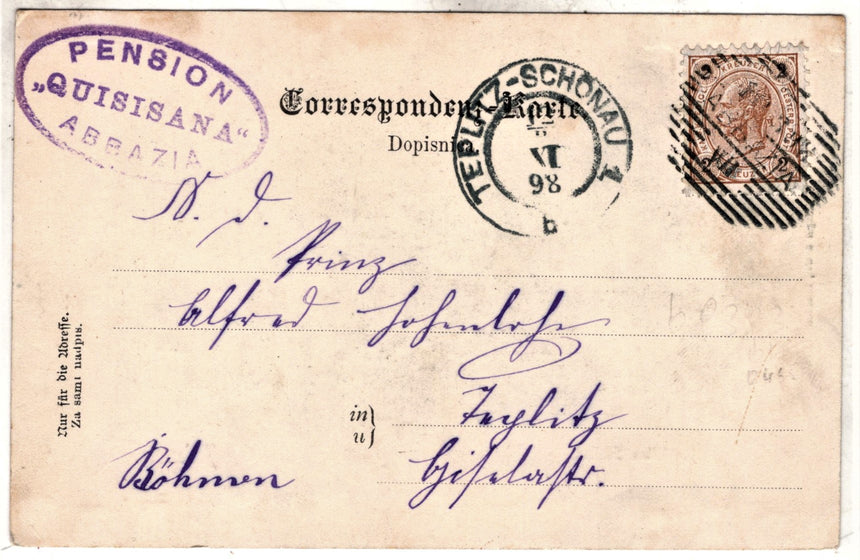 PENSION
„QUISISANA“
ABBAZIA
Correspondenz-Karte
Dopisnica
TEPLITZ-SCHÖNAU 1
VI
98
b
S. d.
Prinz
Alfred Hohenlohe
in
u
Teplitz
Giselastr.
Böhmen
Nur für die Adresse.
Za sami nadpis.